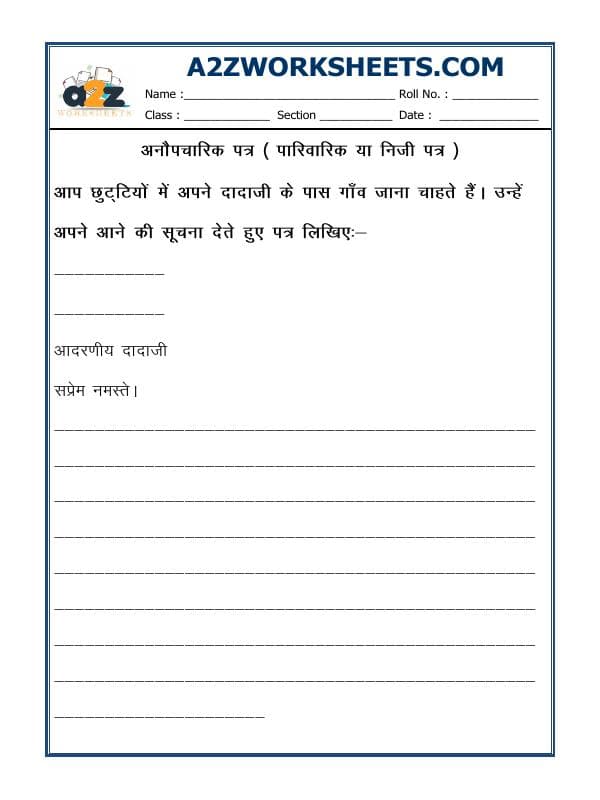 A2ZWORKSHEETS.COM
a2z
WORKSHEETS
Name :________________________________ Roll No. : _____________
Class : _____________ Section ___________ Date : _______________
अनौपचारिक पत्र ( पारिवारिक या निजी पत्र )
आप छुट्टियों में अपने दादाजी के पास गाँव जाना चाहते हैं। उन्हें
अपने आने की सूचना देते हुए पत्र लिखिए:–
___________
___________
आदरणीय दादाजी
सप्रेम नमस्ते।
________________________________________________
________________________________________________
________________________________________________
________________________________________________
________________________________________________
________________________________________________
________________________________________________
________________________________________________
_____________________